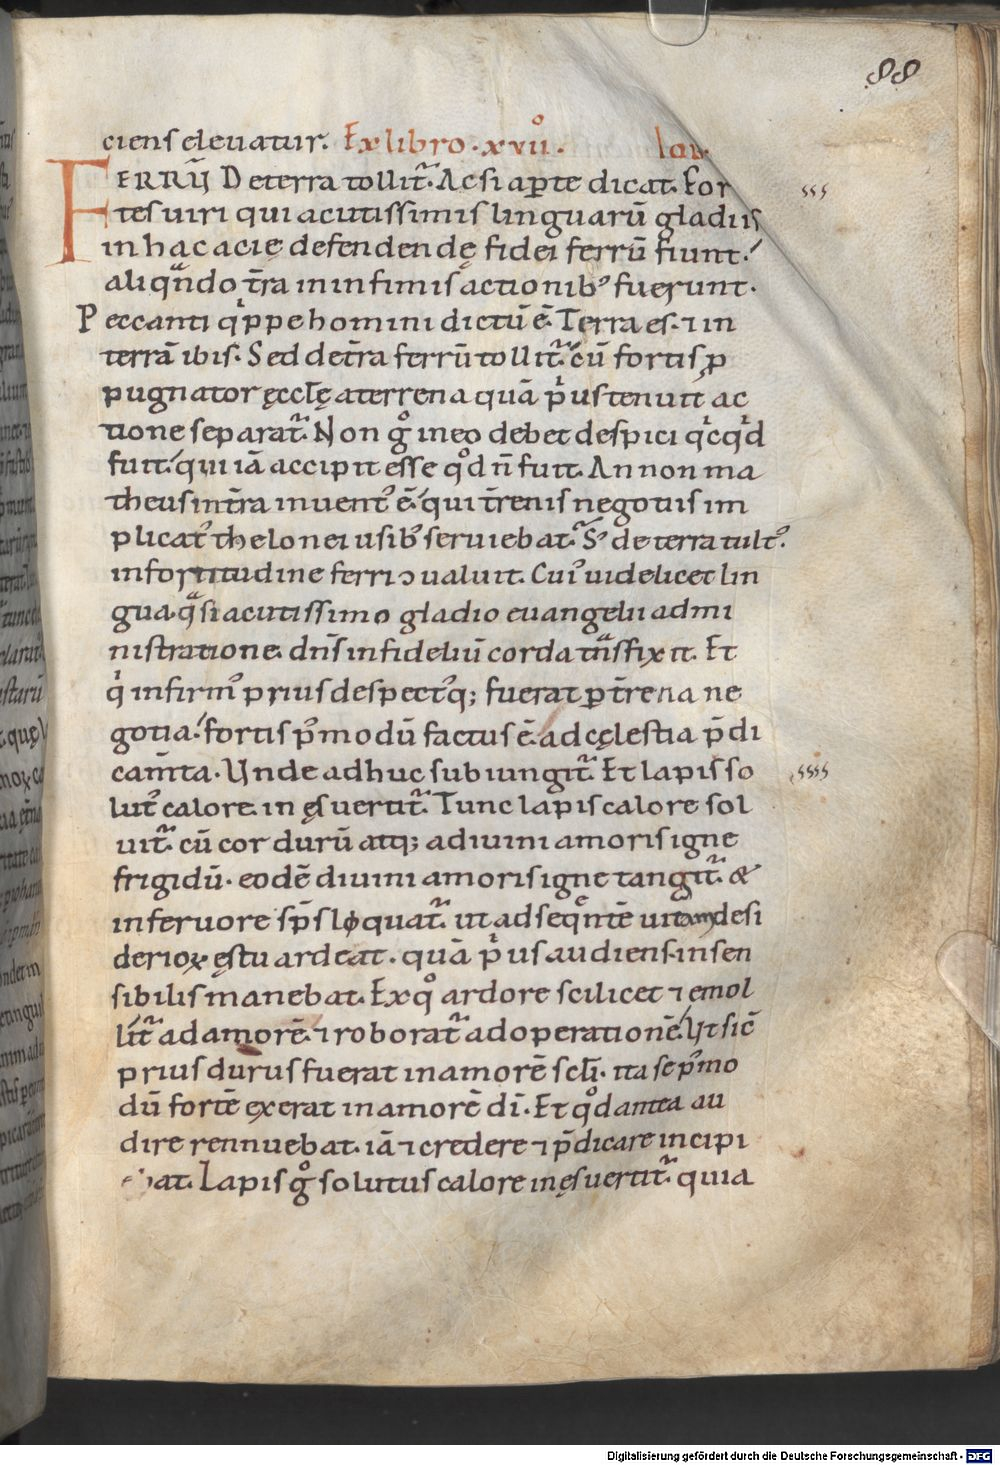 88
ciens eleuatur. Ex libro .xvii°. Iob.
FERRŪ De terra tollit᷑. Ac si aꝑte dicat. For
tes uiri qui acutissimis linguarū gladiis
in hac acie defendendę fidei ferrū fiunt.
aliqᷓndo t̄ra in infimis actionib᾽ fuerunt.
Peccanti qͥppe homini dictū ē. Terra es. ⁊ in
terrā ibis. Sed de t̄ra ferrū tollit᷑. cū fortis ꝓ
pugnator ęcclę̄ a terrena quā pͥus tenuit ac
tione separat᷑. Non gͦ in eo debet despici qͥcqͥd
fuit. qui iā accipit esse qͦd n̄ fuit. An non ma
theus in t̄ra inuent᾽ ē. qui t̄renis negotiis im
plicat᾽ thelonei usib᾽ seruiebat᷑. S᾽ de terra tult᾽.
in fortitudine ferri ɔualuit. Cui᾽ uidelicet lin
gua. qᷓsi acutissimo gladio euangelii admi
nistratione. dn̄s infideliū corda tᷓnsfixit. Et
qͥ infirm᾽ prius despect᾽q; fuerat ꝑ t̄rena ne
gotia. fortis p᾽modū factus ē. ad cęlestia p̄di
cam̄ta. Unde adhuc subiungit᷑. Et lapis so
lut᾽ calore. in ęs uertit᷑. Tunc lapis calore sol
uit᷑. cū cor durū atq; a diuini amoris igne
frigidū. eodē diuini amoris igne tangit᷑. &
in feruore sp̄s liquat᷑. ut ad seqͤntē uitam desi
derioꝝ ęstu ardeat. quā pͥus audiens. insen
sibilis manebat. Ex qͦ ardore scilicet ⁊ emol
lit᷑ ad amorē. ⁊ roborat᷑ ad operationē. Ut sic̄
prius durus fuerat in amorē scl̄i. ita se p᾽mo
dū fortē exerat in amorē dī. Et qͦd antea au
dire rennuebat. iā ⁊ credere ⁊ p̄dicare incipi
ebat. Lapis gͦ solutus calore in ęs uertit᷑. quia
Digitalisierung gefördert durch die Deutsche Forschungsgemeinschaft - DFG